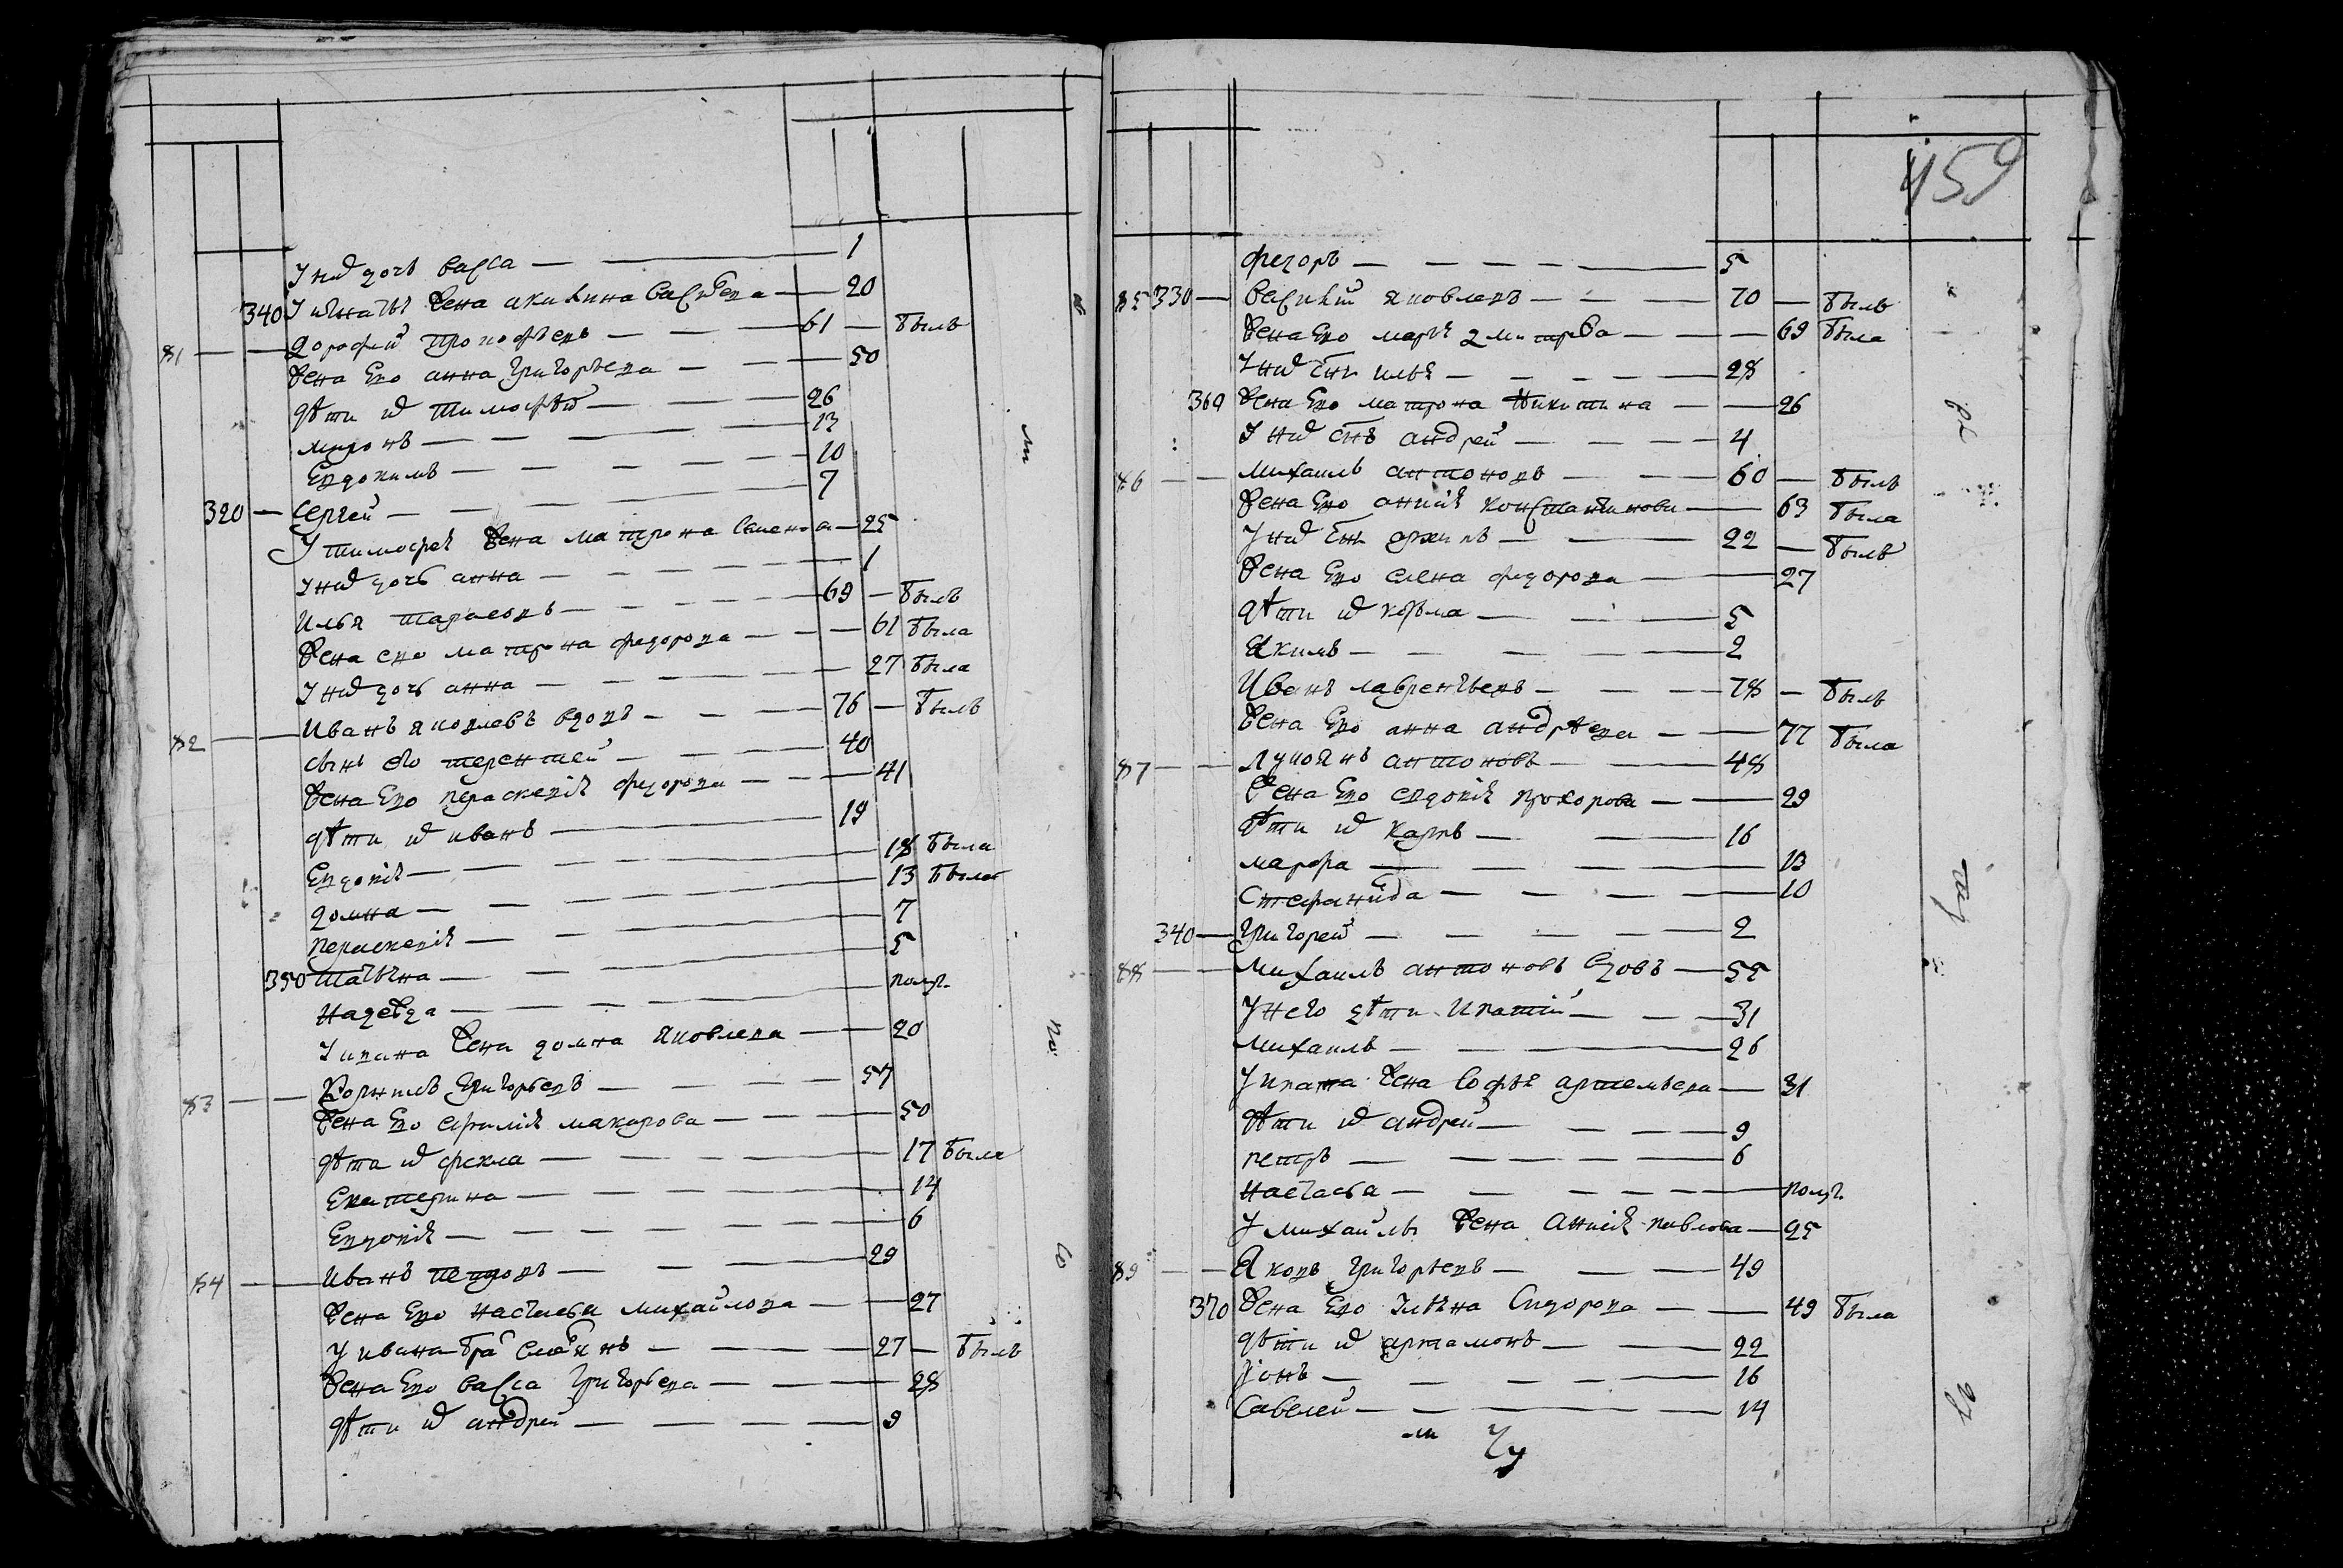 У ниⷯ дочь васса — — 1
340 У игнатьѧ жена акилина васильева — 20
81 — — дорофей прокофьевъ — — — 61 — былъ
жена ево анна григорьева — — — 50
дѣти иⷯ тимофей — — — 26
миронъ — — — — 13
Евдокимъ — — — — 10
320 — сергей — — — — 7
У тимофеѧ жена матрона семенова — 25
У ниⷯ дочь анна — — — — 1
илья тарасовъ — — — — 69 — былъ
жена ево матрона федорова — — — 61 была
У ниⷯ дочь анна — — — — 27 была
82 — — иванъ яковлевъ вдовъ — — — 76 — былъ
сынъ его терентей — — — 40
жена ево параскевиѧ федорова — — — 41
дѣти иⷯ иванъ — — 19
Евдокиѧ — — — — 18 была
домна — — — — 13 была
параскевиѧ — — — 7
350 татьѧна — — — 5
надежда — — — — полуг.
У ивана жена домна яковлева — — 20
83 — — корнилъ григорьевъ — — — 57
жена ево евфимиѧ макарова — — — 50
дѣти иⷯ фекла — — — — 17 была
Екатерина — — — — 14
Евдокиѧ — — — — 6
84 — — иванъ петровъ — — — 29
жена ево настасья михайлова — — 27
у ивана братъ — — — 27 — былъ
жена ево васса григорьева — — — 28
дѣти иⷯ андрей — — — — 9
м
по
со
459
федоръ — — — — 5
85 330 — василий яковлевъ — — — 70 — былъ
жена ево марьѧ дмитрева — — — 69 была
У ниⷯ сынъ ильѧ — — — — 28
360 жена ево матрона никитина — — 26
У ниⷯ сынъ андрей — — — 4
86 — — михаилъ антоновъ — — — 60 — былъ
жена ево анисиѧ константинова — — 63 была
У ниⷯ сынъ архипъ — — 22 — былъ
жена ево елена федорова — — 27
дѣти иⷯ козьма — — — 5
якимъ — — — — 2
иванъ лаврентьевъ — — — 78 — былъ
жена ево анна андрѣева — — 77 была
87 — — лукоянъ антоновъ — — 48
жена ево евдокиѧ прохорова — — 29
дѣти иⷯ карпъ — — 16
марфа — — — — 13
стефанида — — — — 10
340 — григорей — — — — 2
88 — — михаилъ антоновъ вдовъ — 55
У него дѣти ипатий — — — 31
михаилъ — — — 26
У ипата жена софьѧ артемьева — 31
дѣти иⷯ андрей — — — 9
петръ — — — — 6
настасья — — — — полуг.
У михайлы жена анисиѧ павлова — 25
89 — — яковъ григорьевъ — — — 49
370 жена ево ульѧна сидорова — — 49 была
дѣти иⷯ артамонъ — — 22
ионъ — — — — 16
савелей — — — 14